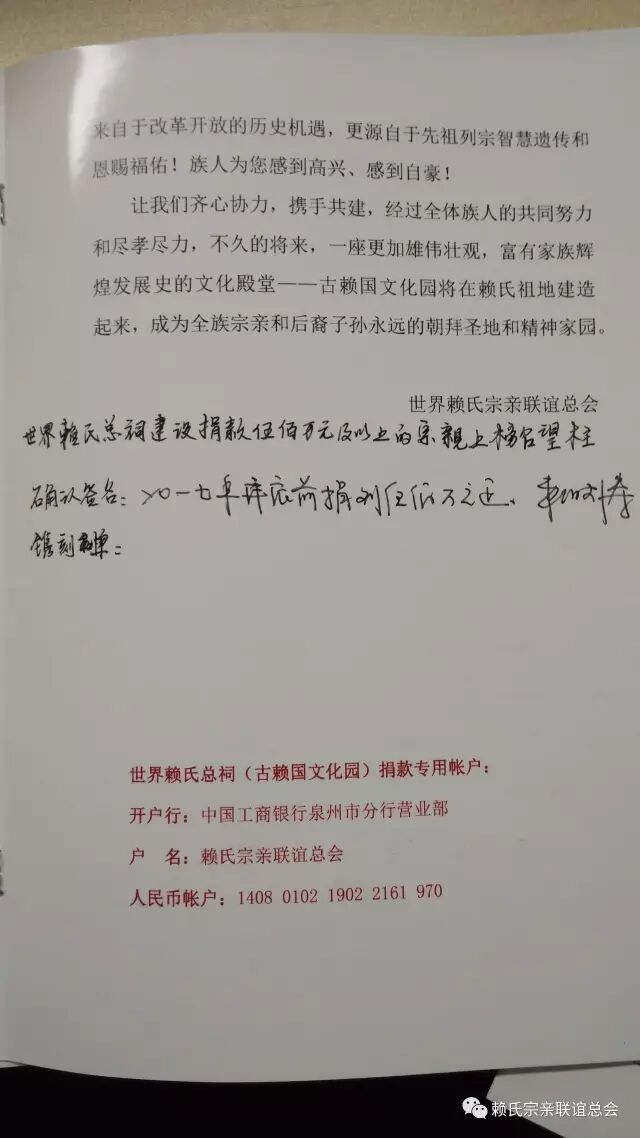 来自于改革开放的历史机遇，更源自于先祖列宗智慧遗传和
恩赐福佑！族人为您感到高兴、感到自豪！
让我们齐心协力，携手共建，经过全体族人的共同努力
和尽孝尽力，不久的将来，一座更加雄伟壮观，富有家族辉
煌发展史的文化殿堂——古赖国文化园将在赖氏祖地建造
起来，成为全族宗亲和后裔子孙永远的朝拜圣地和精神家园。
世界赖氏宗亲联谊总会
世界赖氏总祠建设捐款伍佰万元及以上的宗亲上榜名望柱
确认签名：二0一七年底前捐到伍佰万元
镌刻
世界赖氏总祠（古赖国文化园）捐款专用帐户：
开户行：中国工商银行泉州市分行营业部
户 名：赖氏宗亲联谊总会
人民币帐户：1408 0102 1902 2161 970
赖氏宗亲联谊总会